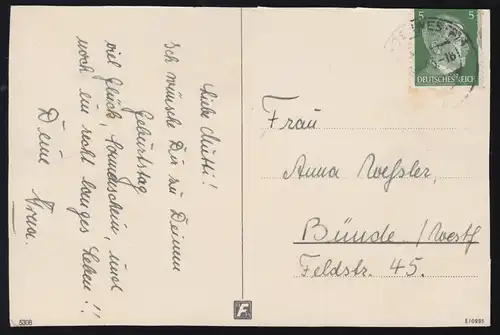 Liebe Mutti!
Ich wünsche Dir zu Deinem
Geburtstag
viel Glück, Sonnenschein, und
noch ein recht langes Leben!!
Deine
5
5
DEUTSCHES REICH
Frau
Anna
Bünde/Westf
Feldstr. 45.
5308
F
E/0995